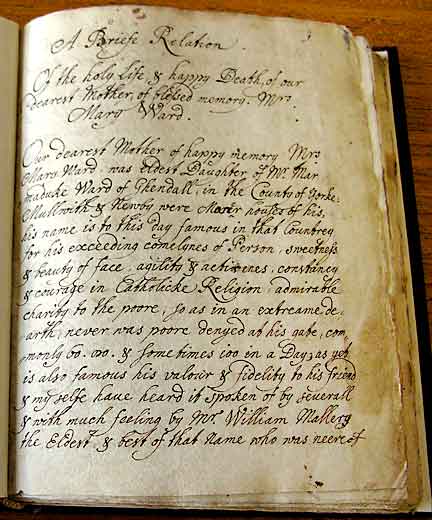 A Briefe Relation
Of the holy life & happy Death, of our
dearest Mother, of blessed memory. Mrs
Mary Ward.
Our dearest Mother of happy memory Mrs
Mary Ward, was eldest Daughter of Mr. Mar
maduke Ward of Ghendall, in the County of Yorke:
Mullwith & Newby were Maner houses of his,
his name is to this day famous in that Countrey
for his exceeding comelynes of Person, sweetness
& beauty of face, agility & activenes, constancy
& courage in Catholicke Religion, admirable
charity to the poore, so as in an extreame de,
arth, never was poore denyed at his gate, com,
monly 60. 80. & sometimes 100 in a Day, as yet
is also famous his valour & fidelity to his friend
& my selfe have heard it spoken of by severall
& with much feeling by Mr. William Mallery
the Eldest & best of that name who was neere of